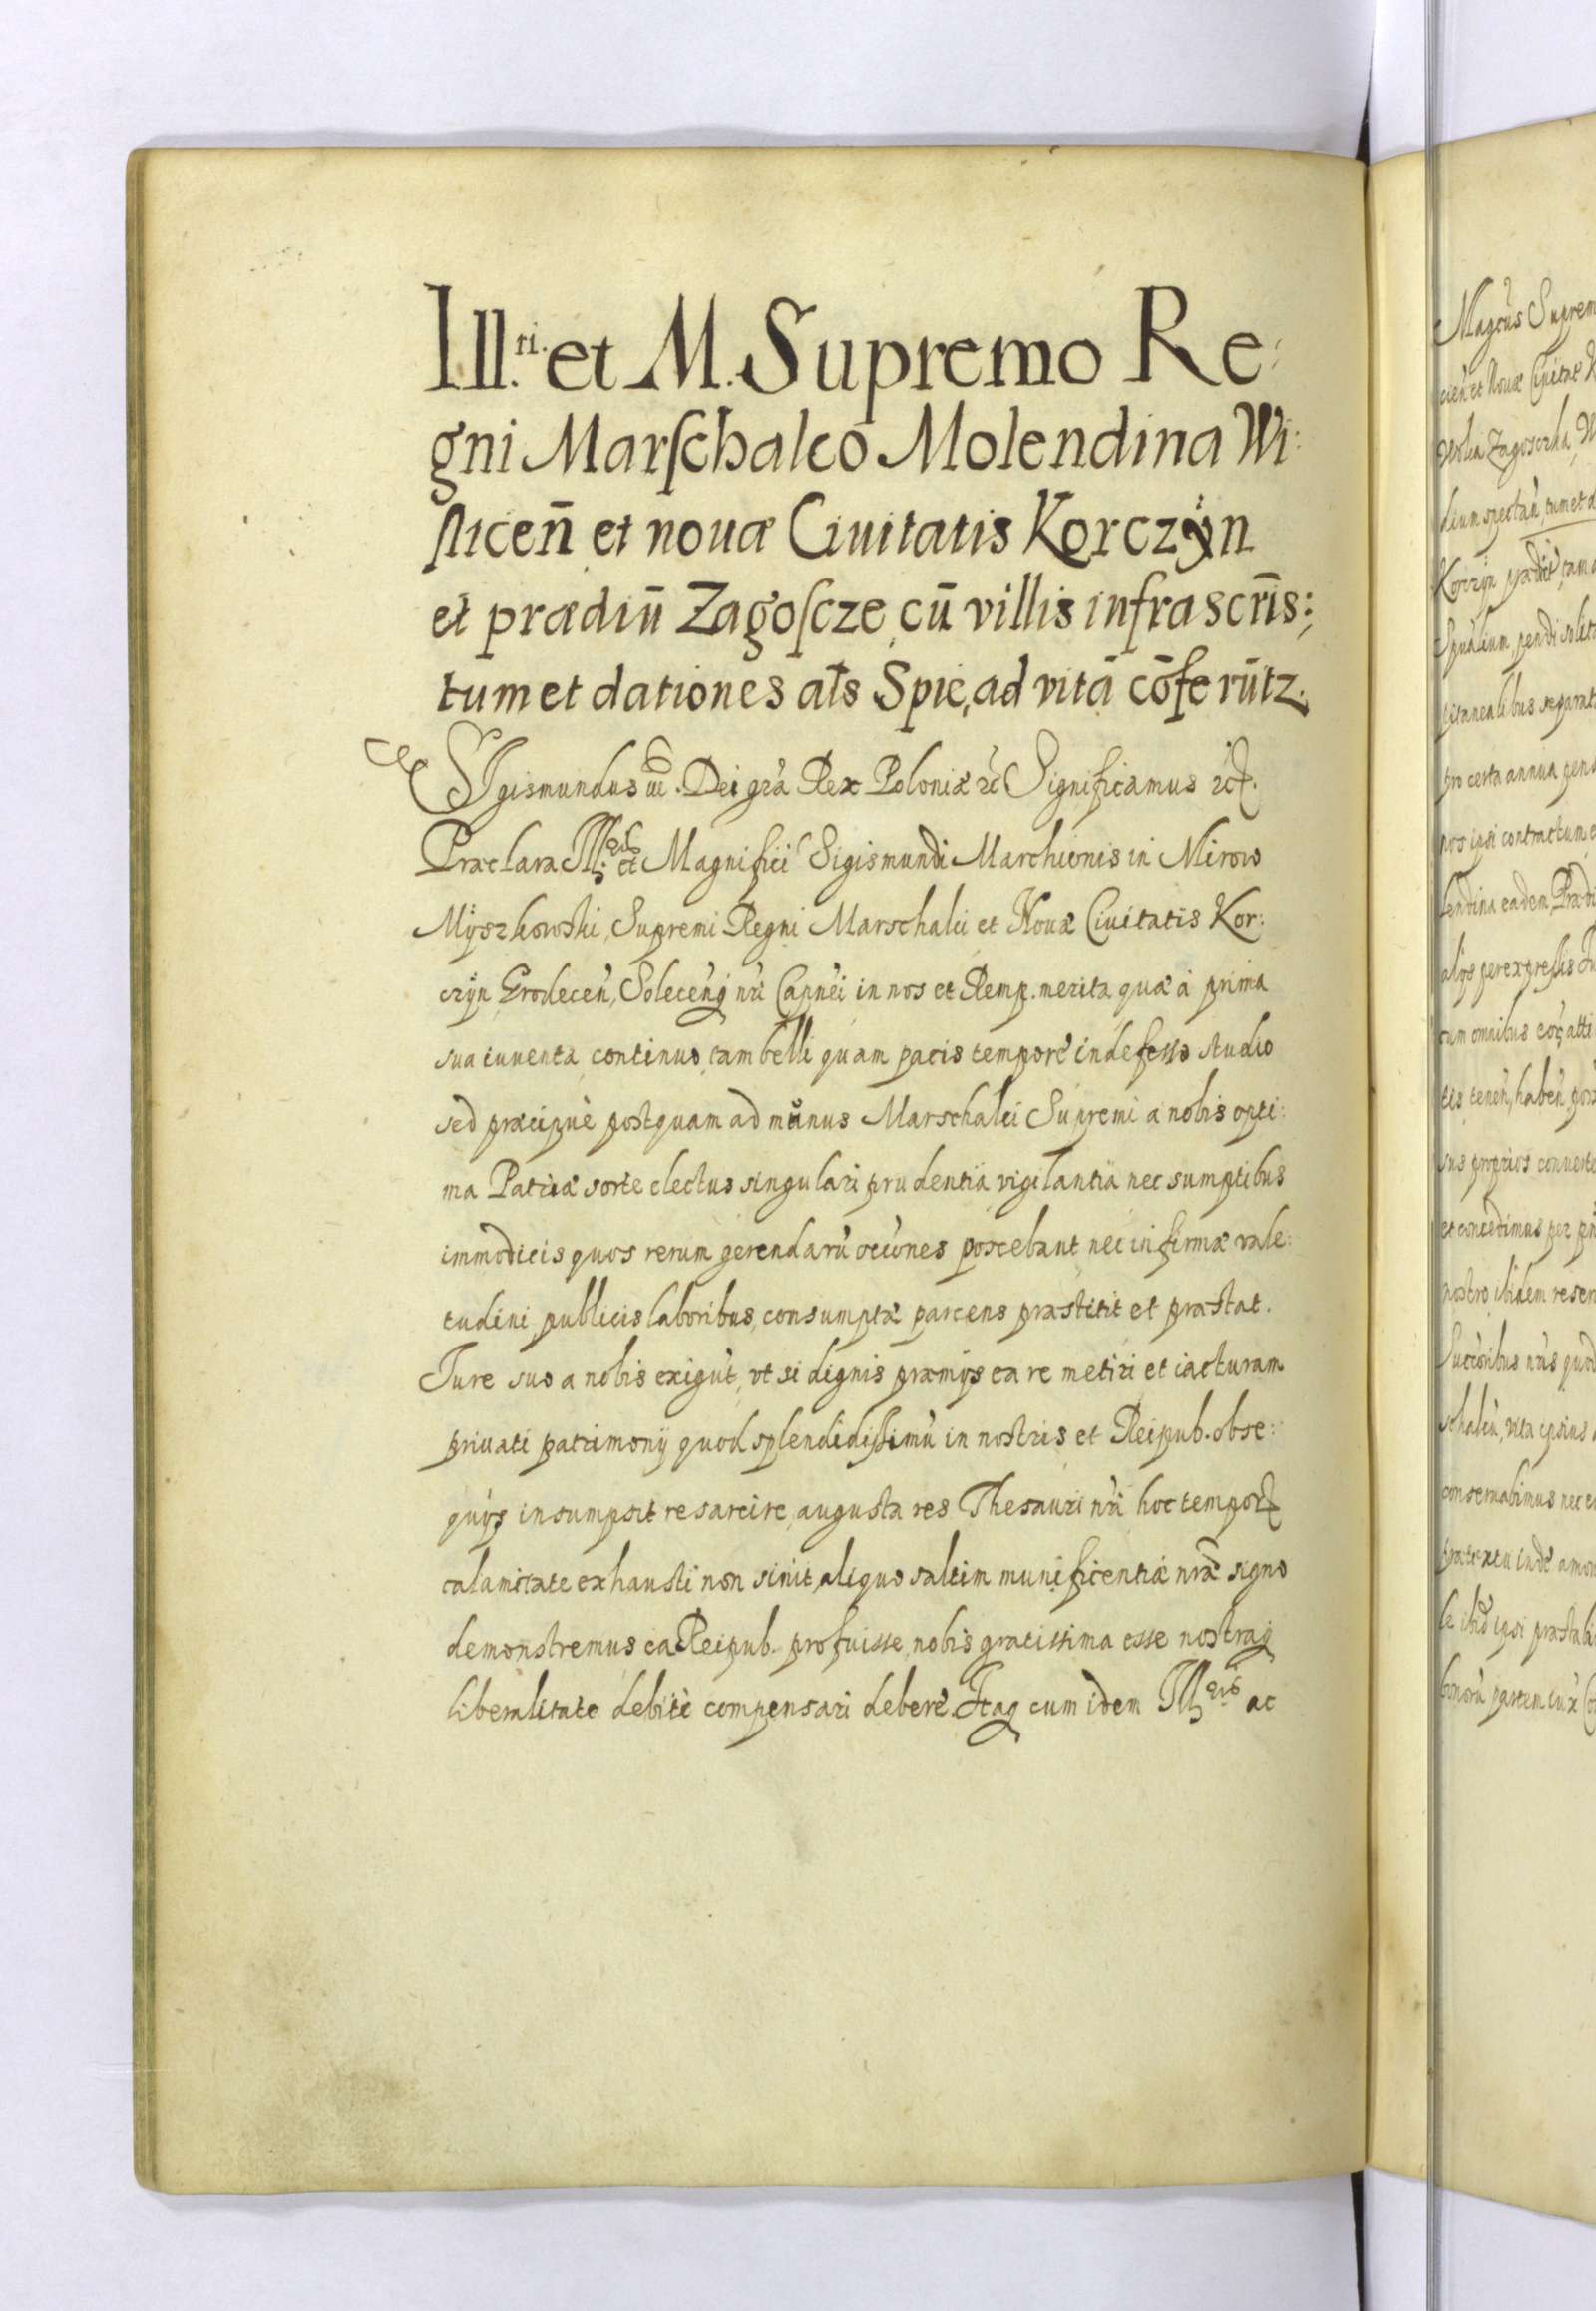 Ill.ri. et M. Supremo Re:
gni Marſchalco Molendina Wi:
ſlicen̄ et nouæ Ciuitatis Korczÿn
et prædiū Zagoſcze cū villis infrascrīs:,
tum et dationes als Spie, ad vitā cōferūtz.
SIgismundus iii. Dei gra Rex Poloniæ etc Significamus etc.
Præclara Ill: et Magnifici Sigismundi Marchionis in Mirow
Mÿszkowski, Supremi Regni Marschalci et Nouæ Ciuitatis Kor:
czÿn Grodecen, Solecenq nri Capnei in nos et Remp. merita quæ à prima
sua iuuenta continuo, tam belli quam pacis tempore indefesso studio
sed præcipuè postquam ad munus Marschalci Supremi a nobis opti:
ma Patriæ sorte electus singulari prudentia vigilantia nec sumptibus
immodicis quos rerum gerendarū occones poscebant nec infirmæ vale:
tudini publicis laboribus, consumptæ parcens præstitit et præstat.
Jure suo a nobis exigūt, vt si dignis præmijs ea re metiri et iacturam
priuati patrimonij quod splendidissimū in nostris et Reipub. obse:
quijs insumpsit resarcire, augusta res Thesauri nri hoc tempor
calamitate exhausti non sinit, aliquo saltim munificentiæ nræ signo
demonstremus ea Reipub. profuisse, nobis gratissima esse nostraq
liberalitate debitè compensari debere. Itaq cum idem Ill ac
Magcus Suprem
cien et Nouæ Ciuitat K
Wola Zagosczka, W
Korczÿn prædict, tam
titanealibus separat
pro certa annua pens
pos ipsi contractum e
lendina eadem Prædi
cum omnibus eoq atti
tis tenen, haben, pos
sus proprios conuerte
et concedimus per pn
nostro ibidem reser
Succoribus nris quod
schalcū, vita ipsius
conseruabimus nec e
bonorū partem